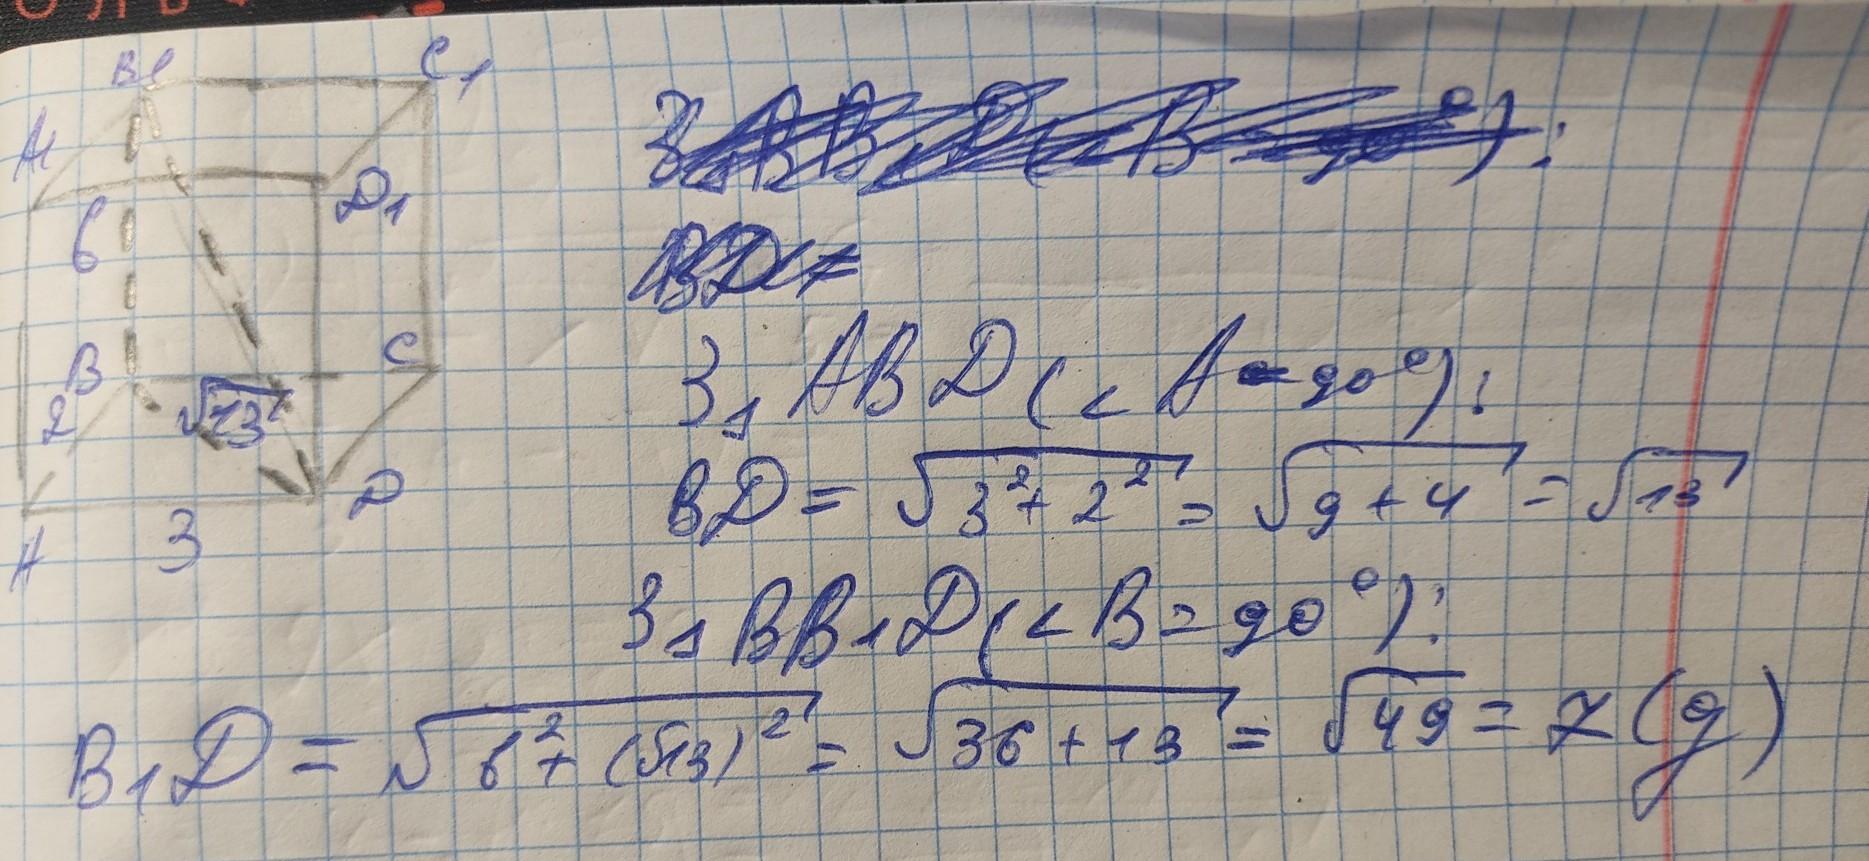 B1 C1
A1
D1
6
B C
2 √13
D
A 3
З △ ABD (∠A = 90°):
BD = √3²+2² = √9+4 = √13
З △ BB1D (∠B = 90°):
B1D = √6²+(√13)² = √36+13 = √49 = 7 (g)